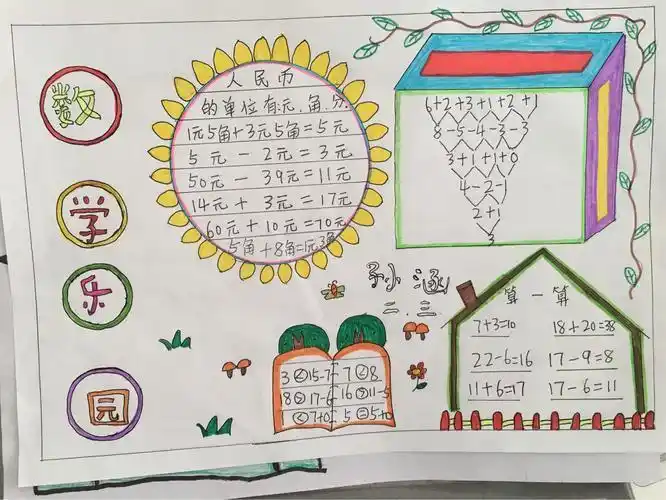 数
学
乐
园
人民币
的单位有:元、角、分
1元5角+3元5角=5元
5元-2元=3元
50元-39元=11元
14元+3元=17元
60元+10元=70元
5角+8角=1元3角
6+2+3+1+2+1
8-5-4-3-3
3+1+1+0
4-2-1
2+1
3
二.三
算一算
7+3=10 18+20=38
22-6=16 17-9=8
11+6=17 17-6=11
3<15-7 7<8
8>17-6 16>11-5
<7+0 5=5+0